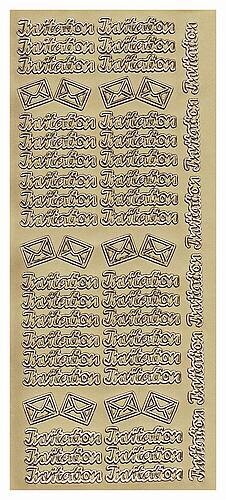 Invitation Invitation
Invitation Invitation
Invitation Invitation
Invitation Invitation
Invitation Invitation
Invitation Invitation
Invitation Invitation
Invitation Invitation
Invitation Invitation
Invitation Invitation
Invitation Invitation
Invitation Invitation
Invitation Invitation
Invitation Invitation
Invitation Invitation
Invitation Invitation
Invitation Invitation
Invitation Invitation
Invitation
Invitation
Invitation
Invitation
Invitation
Invitation
Invitation
Invitation